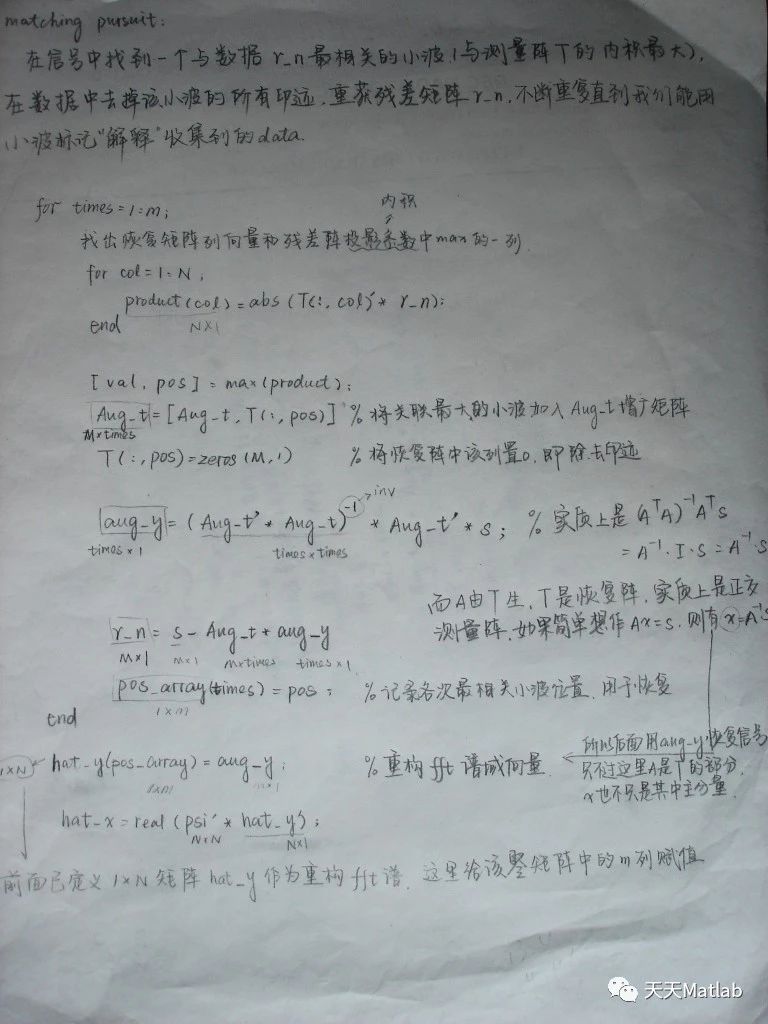 matching pursuit:
在信号中找到一个与数据 r_n 最相关的小波(与测量阵T的内积最大),
在数据中去掉该小波的所有印迹,重获残差矩阵 r_n,不断重复直到我们能用
小波标记"解释"收集到的data.
for times=1:m;
内积
找出恢复矩阵列向量和残差阵投影系数中max的一列
for col=1:N,
product(col)=abs(T(:,col)'* r_n);
end
N×1
[val, pos] = max(product);
Aug_t=[Aug_t, T(:,pos)] % 将关联最大的小波加入Aug_t增广矩阵
M×times
T(:,pos)=zeros(M,1) % 将恢复阵中该列置0,即除去印迹
inv
aug_y = (Aug_t' * Aug_t)^-1 * Aug_t' * s; % 实质上是 (AᵀA)⁻¹Aᵀs
times×1 times×times = A⁻¹·I·s = A⁻¹·s
而A由T生,T是恢复阵,实质上是正交
测量阵,如果简单想作Ax=s,则有 x=A⁻¹s
r_n = s - Aug_t * aug_y
M×1 M×1 M×times times×1
pos_array(times) = pos; % 记录各次最相关小波位置,用于恢复
1×m
end
所以后面用aug_y恢复信号
1×N hat_y(pos_array) = aug_y; % 重构fft谱域向量
只不过这里A是T的部分,
1×m
x也不只是其中主分量.
hat_x = real(psi' * hat_y);
N×N N×1
前面已定义 1×N 矩阵 hat_y 作为重构fft谱,这里给该矩阵中的m列赋值
天天Matlab